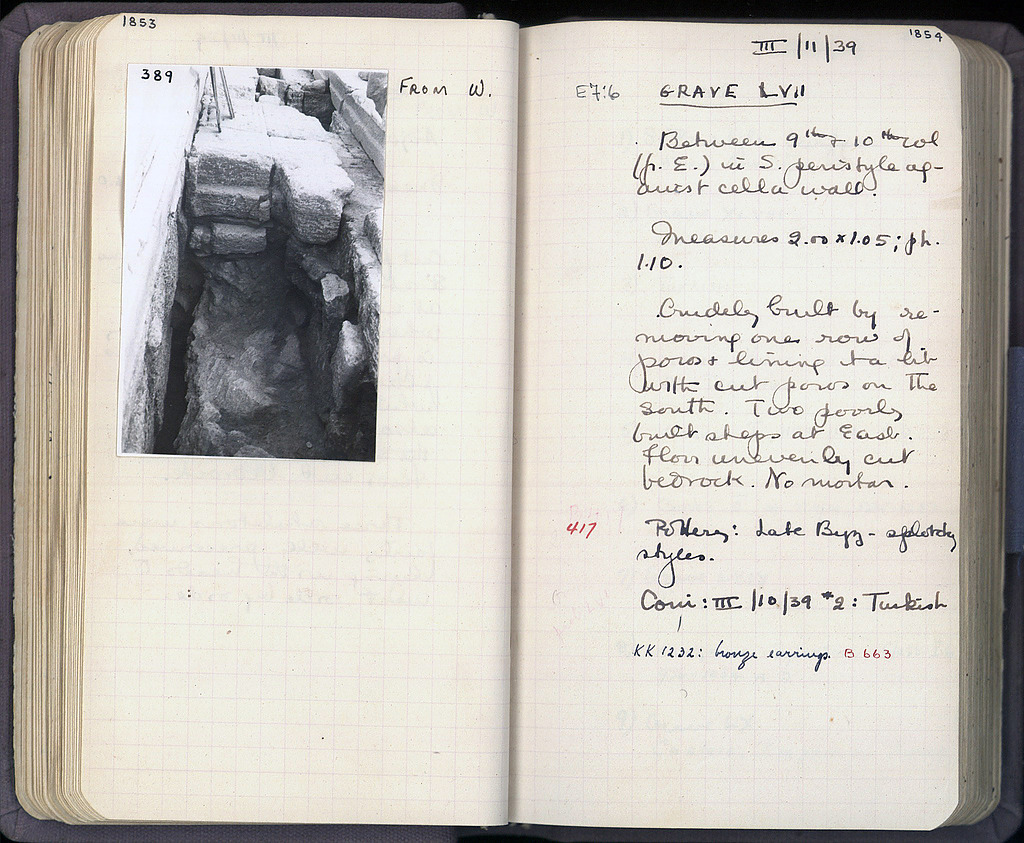 1853
389
FROM W.
1854
III/11/39
E7:6 GRAVE LVII
Between 9th + 10th col
(fr. E.) in S. peristyle ag-
ainst cella wall.
Measures 2.00 x 1.05; ph.
1.10.
Crudely built by re-
moving one row of
poros + lining it a bit
with cut poros on the
south. Two poorly
built steps at East.
Floor unevenly cut
bedrock. No mortar.
417 Pottery: Late Byz - splotchy
styles.
Coin: III/10/39 #2: Turkish
KK 1232: bronze earrings. B 663